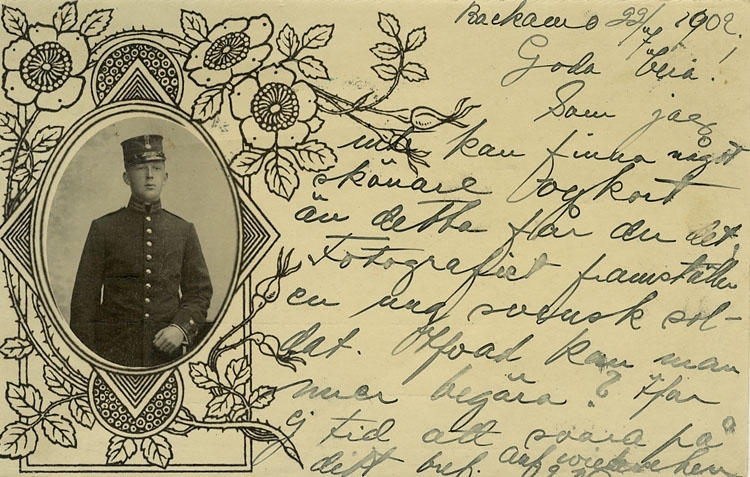 Backamo 22/7 1902.
Goda !
Som jag
kan finna något
skönare
än detta får du det.
Fotografiet framställer
en ung svensk sol-
dat. Hvad kan man
mer begära? Har
ej tid att svara på
ditt bref. Auf wiedersehen